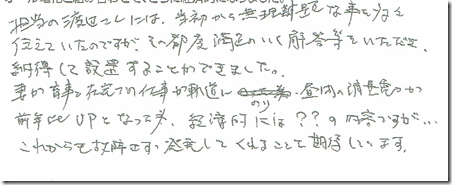 担当の渡辺さんには、当初から無理難題な事を多々
伝えていたのですが、その都度満足のいく解答等をいただき、
納得して設置することができました。
妻が育事と在宅での仕事が軌道にのり昼間の消費電力が
前年比UPとなった為、経済的には??の内容ですが…
これからも故障せず、発電してくれることを期待しています。